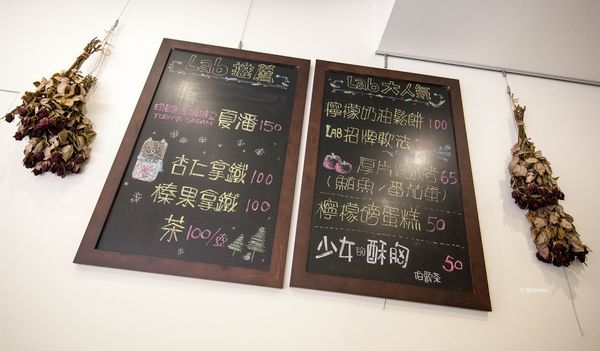 Lab 推薦
夏潘 150
杏仁拿鐵 100
榛果拿鐵 100
茶 100/壺
Lab 大人氣
檸檬奶油鬆餅 100
LAB 招牌軟法
厚片 65
(鮪魚/番茄蛋)
檸檬磅蛋糕 50
少女的酥胸 50
伯爵茶